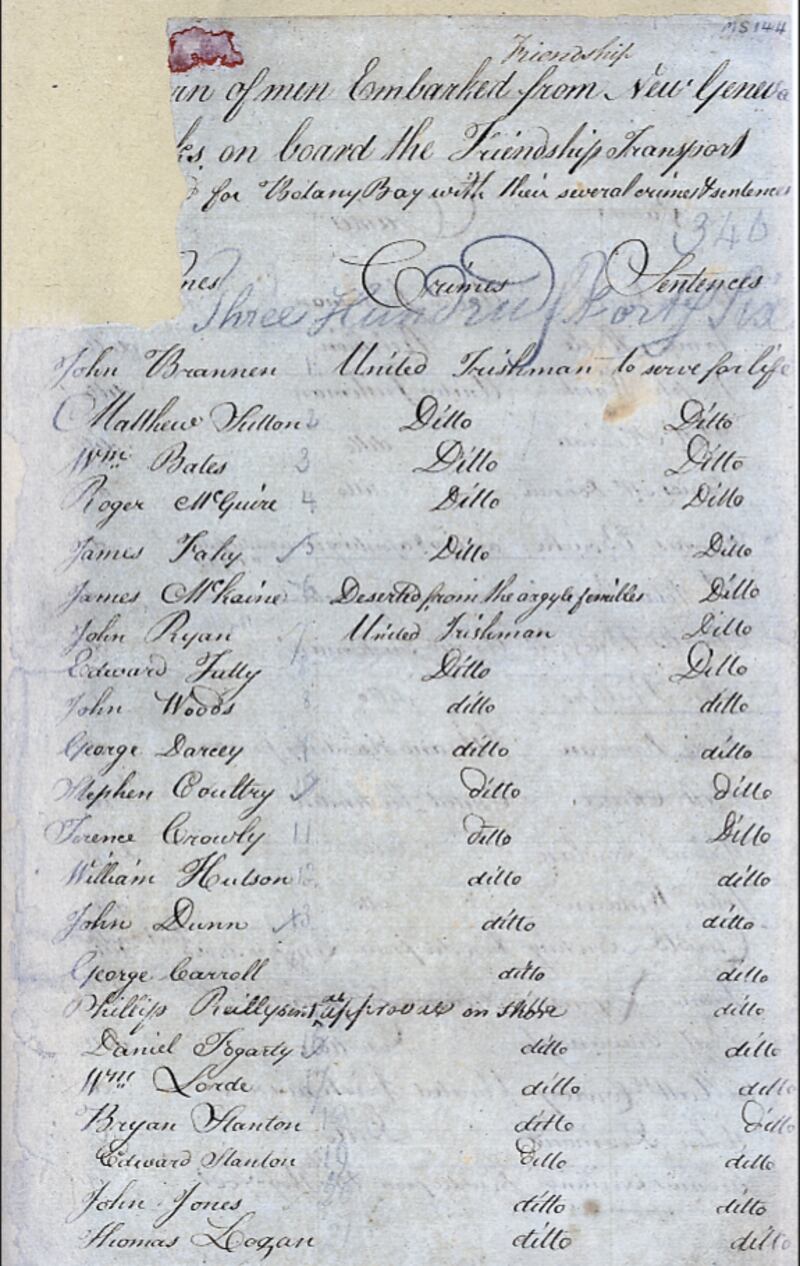 MS 144
Friendship
of men Embarked from New Geneva
ks on board the Friendship Transport
for Botany Bay with their several crimes & sentences
346
mes Crimes Sentences
Three Hundred Forty Six
John Brannen 1 United Irishman to serve for life
Matthew Sutton 2 Ditto Ditto
Wm Bates 3 Ditto Ditto
Roger McGuire 4 Ditto Ditto
James Fahy 5 Ditto Ditto
James McKaine Deserted from the argyle fencibles Ditto
John Ryan 7 United Irishman Ditto
Edward Tully Ditto Ditto
John Woods 8 ditto ditto
George Darcey ditto ditto
Stephen Coultry ditto ditto
Terence Crowly 11 ditto Ditto
William Hutson 12 ditto ditto
John Dunn 13 ditto ditto
George Carroll ditto ditto
Phillip Reilly sent as approver on shore ditto
Daniel Fogarty ditto ditto
Wm Lorde 17 ditto ditto
Bryan Stanton ditto ditto
Edward Stanton 19 ditto ditto
John Jones ditto ditto
Thomas Logan ditto ditto